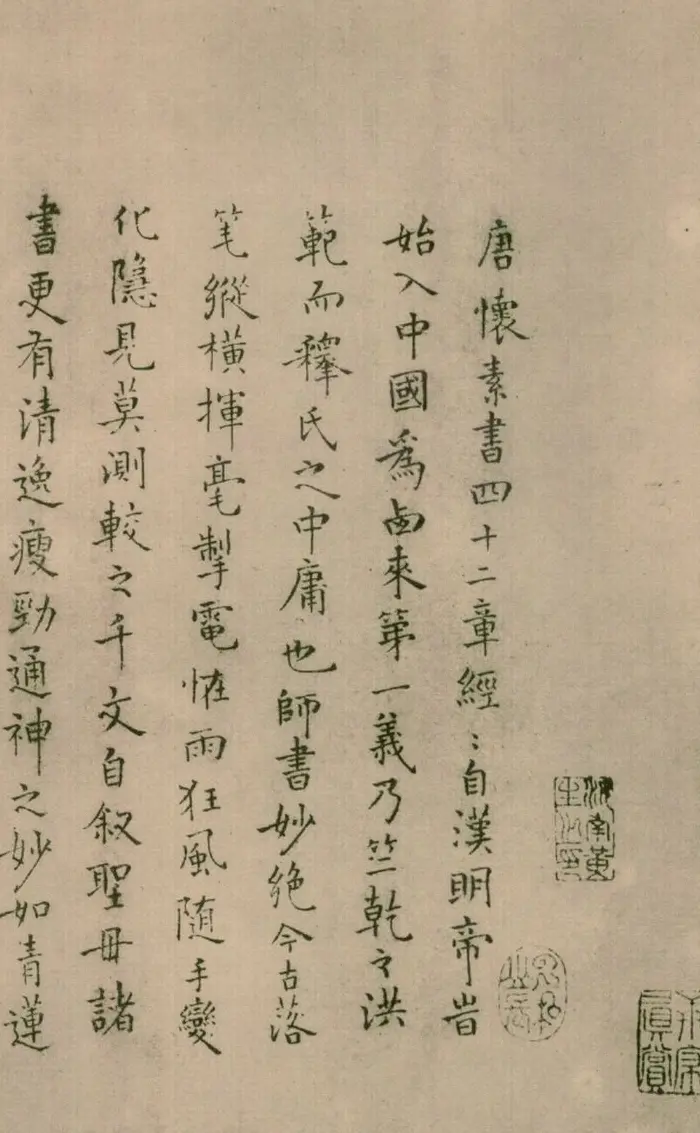 唐懷素書四十二章經〻自漢明帝旹
始入中國為卥來第一義乃竺乾之洪
範而釋氏之中庸也師書妙絶今古落
笔縱橫揮毫掣電恠雨狂風随手變
化隱見莫測較之千文自叙聖母諸
書更有清逸瘦勁通神之妙如青蓮